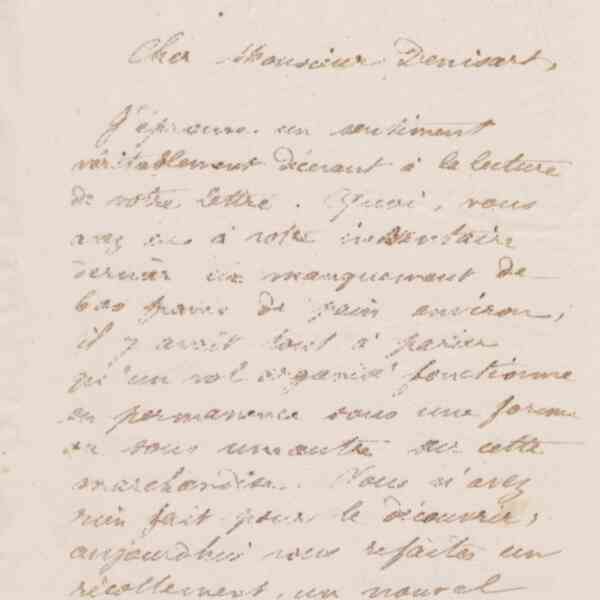 Cher Monsieur Denisart,
J'éprouve un sentiment
véritablement écœurant à la lecture
de votre lettre. Quoi, vous
avez eu à votre inventaire
dernier un manquement de
600 francs de pain environ,
il y avait tout à parier
qu'un vol organisé fonctionne
en permanence sous une forme
ou sous une autre sur cette
marchandise. Vous n'avez
rien fait pour le découvrir,
aujourd'hui vous refaites un
récollement, un nouvel